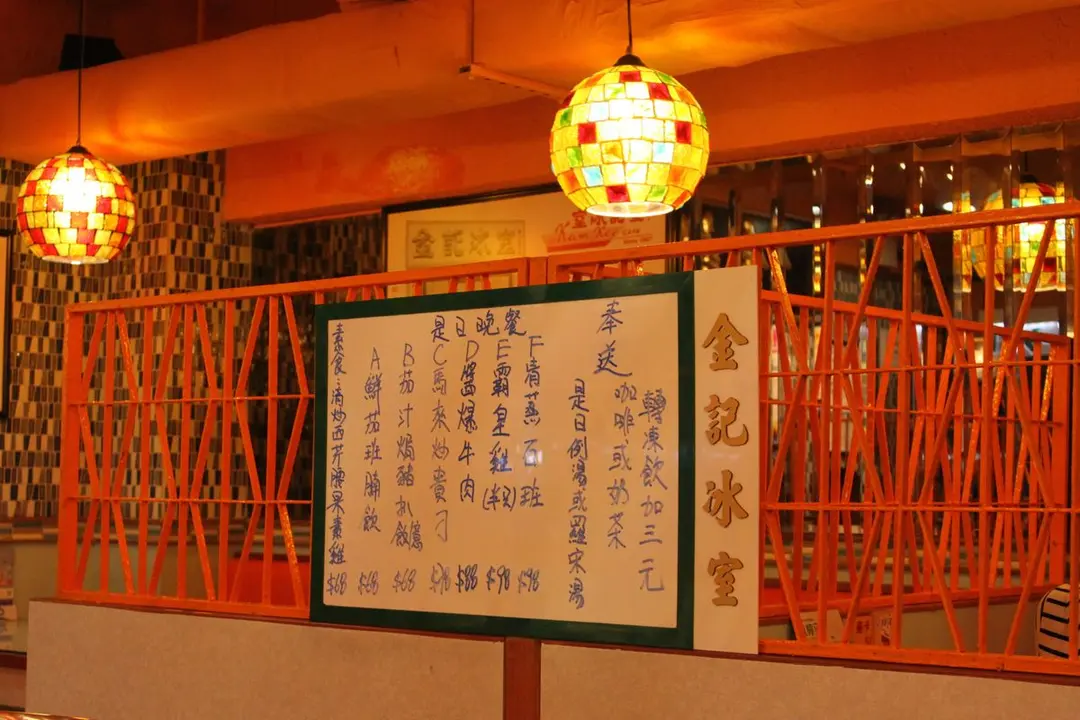 金記冰室
Kam Kee Cafe
是日晚餐
素食:清炒西芹腰果素雞 $68
A鮮茄班腩飯 $68
B茄汁焗豬扒飯 $68
C馬來炒貴刁
D醬爆牛肉 $88
E霸皇雞(半只) $98
F清蒸石班 $98
奉送
是日例湯或羅宋湯
咖啡或奶茶
轉凍飲加三元
金記冰室